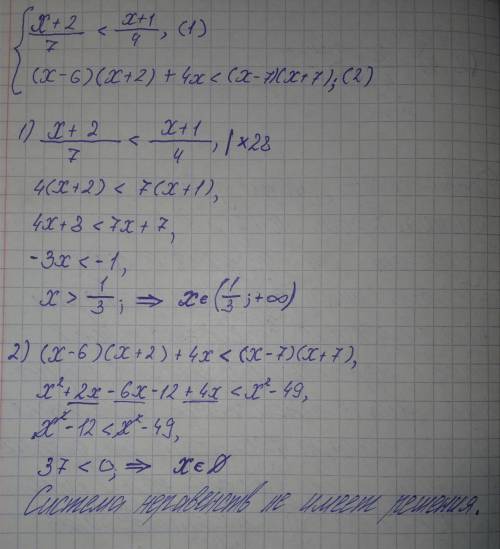 { (x+2)/7 < (x+1)/4, (1)
(x-6)(x+2)+4x<(x-7)(x+7); (2)
1) (x+2)/7 < (x+1)/4, |×28
4(x+2) < 7(x+1),
4x+8<7x+7,
-3x<-1,
x > 1/3; ⇒ x∈(1/3;+∞)
2) (x-6)(x+2)+4x<(x-7)(x+7),
x²+2x-6x-12+4x<x²-49,
x²-12<x²-49,
37<0, ⇒ x∈∅
Система неравенств не имеет решения.